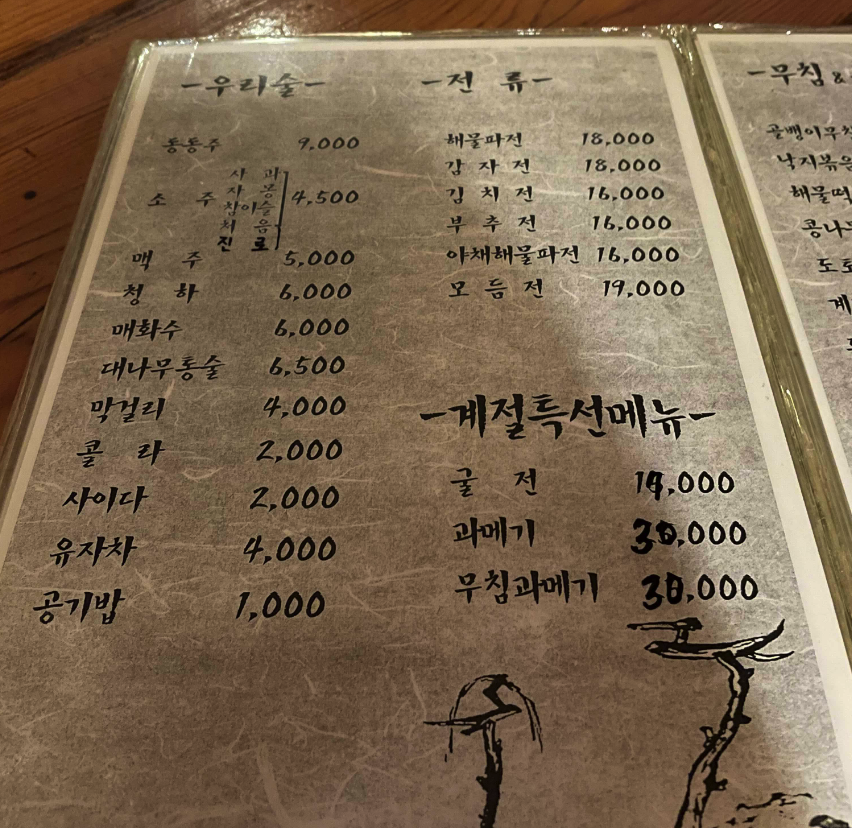 -우리술-
동동주 9,000
소 주 사과 자몽 참이슬 처음 진로 4,500
맥 주 5,000
청 하 6,000
매화수 6,000
대나무통술 6,500
막걸리 4,000
콜 라 2,000
사이다 2,000
유자차 4,000
공기밥 1,000
-전 류-
해물파전 18,000
감 자 전 18,000
김 치 전 16,000
부 추 전 16,000
야채해물파전 16,000
모 듬 전 19,000
-계절특선메뉴-
굴 전
과메기
무침과메기
-무침 &
골뱅이무침
낙지볶음
해물떡
콩나
도토
계